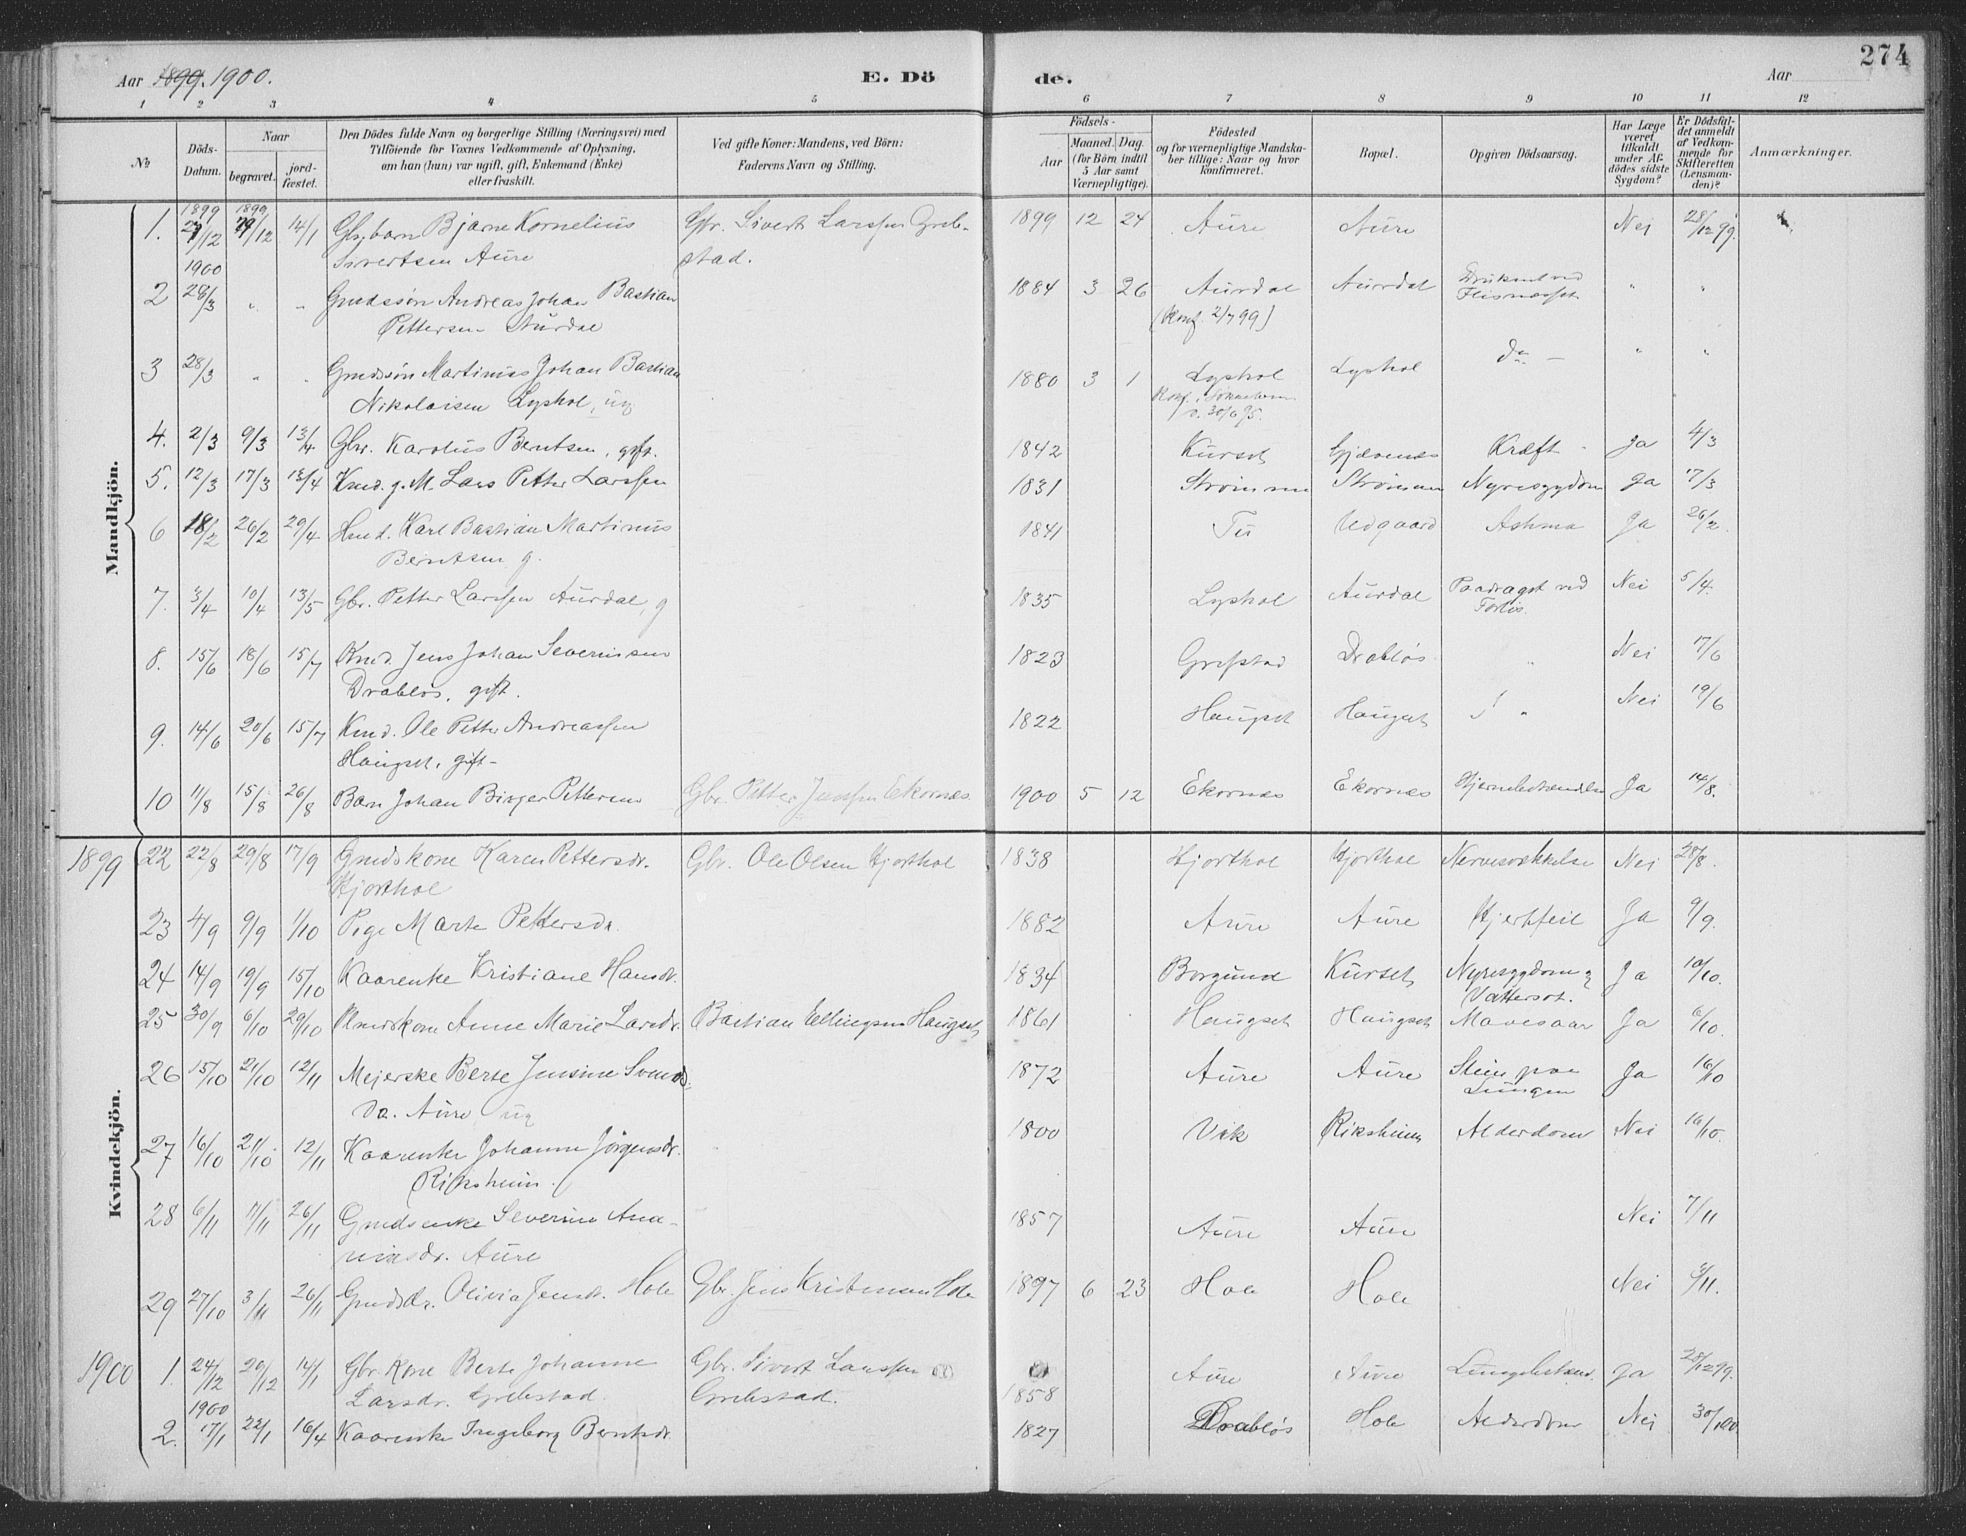 274
Aar 1899. 1900. E. Dö de. Aar
1 2 3 4 5 6 7 8 9 10 11 12
№
Döds-Datum.
Naar
begravet.
jord-fæstet.
Den Dödes fulde Navn og borgerlige Stilling (Næringsvei) med
Tilföiende for Voxnes Vedkommende af Oplysning,
om han (hun) var ugift, gift, Enkemand (Enke)
eller fraskilt.
Ved gifte Koner: Mandens, ved Börn:
Faderens Navn og Stilling.
Födsels-
Aar
Maaned. Dag.
(for Börn indtil
5 Aar samt
Værnepligtige).
Födested
og for værnepligtige Mandska-
ber tillige: Naar og hvor
konfirmeret.
Bopæl.
Opgiven Dödsaarsag.
Har Læge
været
tilkaldt
under Af-
dödes sidste
Sygdom?
Er Dödsfal-
det anmeldt
af Vedkom-
mende for
Skifteretten
(Lensman-
den)?
Anmærkninger.
Mandkjön.
1899 1899
1. 27/12 29/12 14/1 Gbr.barn Bjarne Kornelius Gbr. Sivert Larssen Greb- 1899 12 24 Aure Aure Nei 28/12 99.
Sivertsen Aure stad.
1900
2 28/3 " " Gmdssøn Andreas Johan Bastian 1884 3 26 Aurdal Aurdal Druknet ved " "
Pettersen Aurdal (Konf. 2/7 99) Flisnæsset
3 28/3 " " Gmdssøn Martinus Johan Bastian 1880 3 1 Lyshol Lyshol do — " "
Nikolaisen Lyshol, ug Konf. i
30/6 95.
4. 2/3 9/3 13/4 Gbr. Karolus Berntsen, gift. 1842 Kurset Gjævenes Kræft - Ja 4/3
5. 12/3 17/3 13/4 Kmd. g. M. Lars Petter Larssen 1831 Strømmen Strømmen Nyresygdom Ja 17/3
6 18/2 26/2 29/4 Hmd. Karl Bastian Martinus 1841 Tu Vedgaard Asthma Ja 26/2
Berntsen g.
7. 3/4 10/4 13/5 Gbr. Petter Larssen Aurdal, g 1835 Lyshol Aurdal Paadraget ved Nei 5/4.
Forlis.
8. 15/6 18/6 15/7 Kmd. Jens Johan Severinsen 1823 Grefstad Drabløs " Nei 17/6
Drabløs, gift.
9. 14/6 20/6 15/7 Kmd. Ole Petter Andreassen 1822 Haugset Haugset " Nei 19/6
Haugset, gift-
10 11/8 15/8 26/8 Barn Johan Birger Pettersen Gbr. Petter Jenssen Ekornes 1900 5 12 Ekornes Ekornes Hjernebetændelse Ja 14/8.
Kvindekjön.
1899 22 22/8 29/8 17/9 Gmdskone Karen Pettersdr. Gbr. Ole Olsen Hjorthol 1838 Hjorthol Hjorthol Nervesvækkelse Nei 28/8.
Hjorthol
23 4/9 9/9 1/10 Pige Marte Pettersdr. 1882 Aure Aure Hjertfeil Ja 9/9.
24 14/9 19/9 15/10 Kaarenke Kristiane Hansdr. 1834 Borgund Kurset Nyresygdom og Ja 10/10.
Vattersot.
25 30/9 6/10 29/10 Kmdskone Anne Marie Larsdr. Bastian Ellingsen Haugset 1861 Haugset Haugset Mavesaar Ja 6/10.
26 15/10 21/10 12/11 Meierske Berte Jensine Svends- 1872 Aure Aure Steen paa Ja 16/10
Da. Aure ug Lungen
27 16/10 21/10 12/11 Kaarenke Johanne Jørgensdr. 1800 Vik Riksheim Alderdom Nei 16/10.
Riksheim.
28 6/11 11/11 26/11 Gmdsenke Severine Ana- 1857 Aure Aure Nei 7/11
niasdr. Aure
29 27/10 3/11 26/11 Gmdsdr. Olivia Jensdr. Hole Gbr. Jens Kristensen Hole 1897 6 23 Hole Hole Nei 3/11.
1900 1. 24/12 29/12 14/1 Gbr. Kone Berte Johanne Gbr. Sivert Larssen Aure Aure Lungebetænd. Ja 28/12 99.
Larsdr. Grebstad. Grebstad. 1858
1900
2. 17/1 22/1 16/4 Kaarenke Ingeborg Berntsdr. 1827 Drabløs Hole Alderdom Nei 30/1 00.